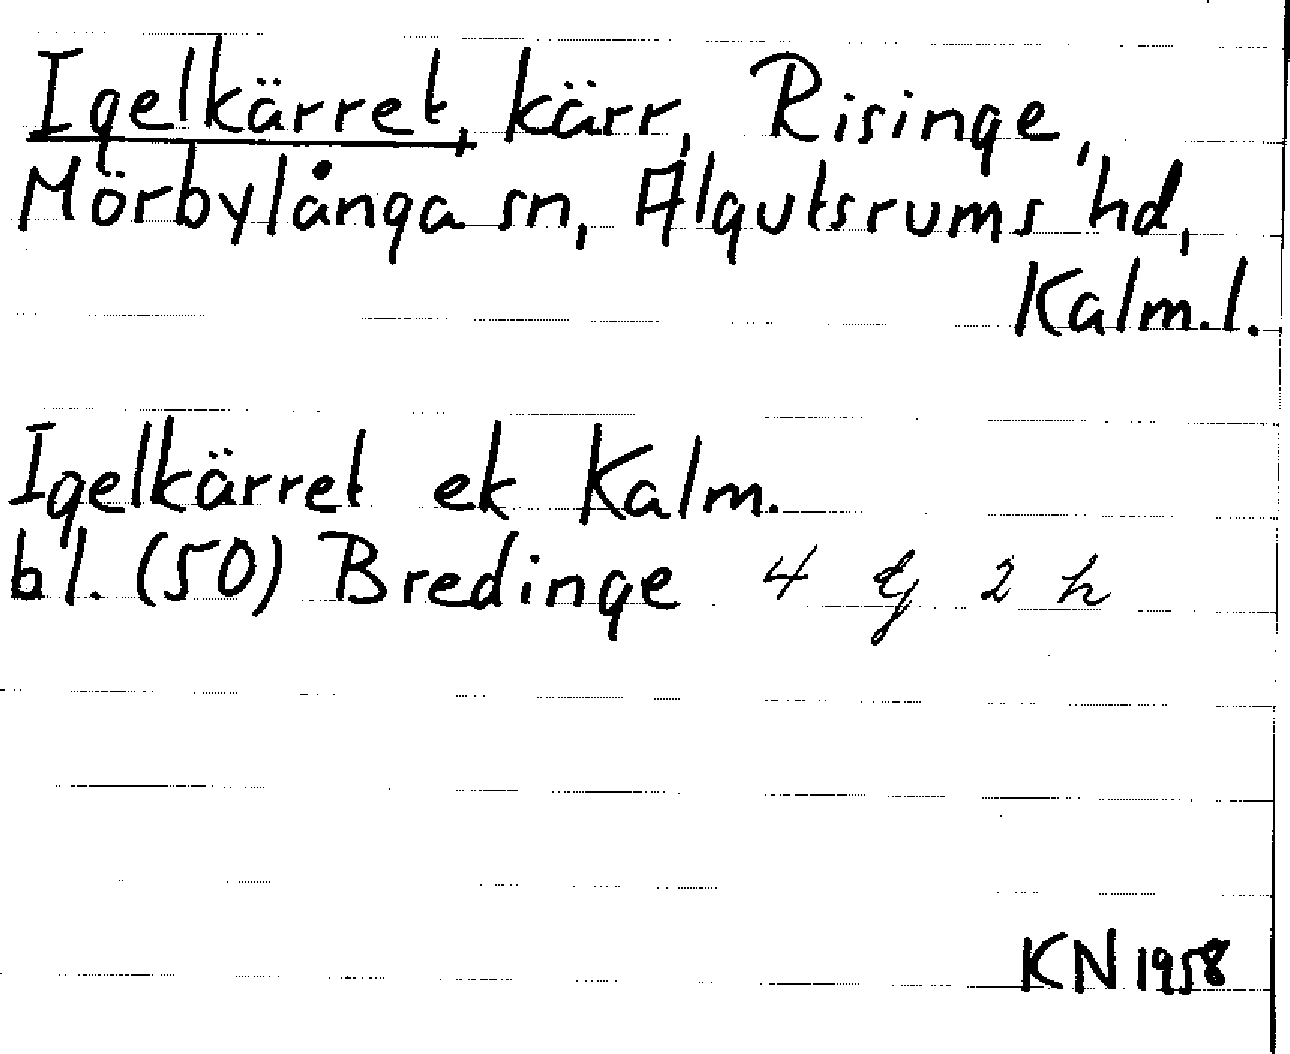 Igelkärret, kärr, Risinge,
Mörbylånga sn, Algutsrums hd,
Kalm.l.
Igelkärret ek Kalm.
bl. (50) Bredinge 4 G 2 h
KN 1958